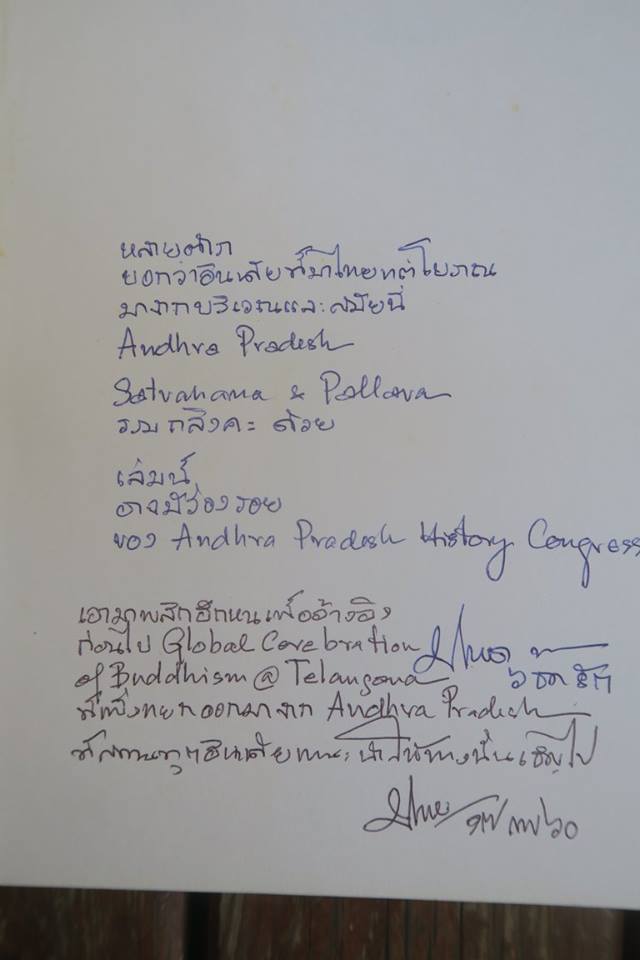 หลายตำรา
บอกว่าอินเดียที่มาไทยแต่โบราณ
มาจากบริเวณและสมัยนี้
Andhra Pradesh
Satvahana & Pallava
รวม กลิงคะ ด้วย
เล่มนี้
อาจมีร่องรอย
ของ Andhra Pradesh History Congress
เอามาพลิกอีกหนเพื่ออ้างอิง
ก่อนไป Global Cerebration
of Buddhism @ Telangana
ที่เพิ่งแยกออกมาจาก Andhra Pradesh
ที่สถานทูตอินเดียแนะนำให้ทางนั้นเชิญไป